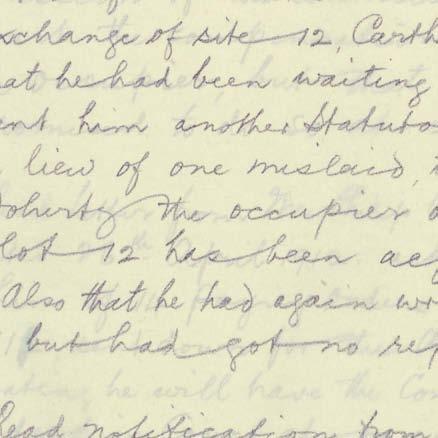 xchange of site 12, Carth
at he had been waiting
ent him another Statuto
lieu of one mislaid,
Doherty the occupier o
lot 12 has been ac
Also that he had again wr
but had got no rep
Read notification from